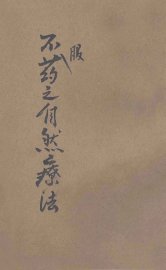 不服药之自然療法